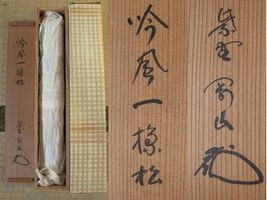 吟風一様松
紫野 剛山
吟風一様松
紫野 剛山